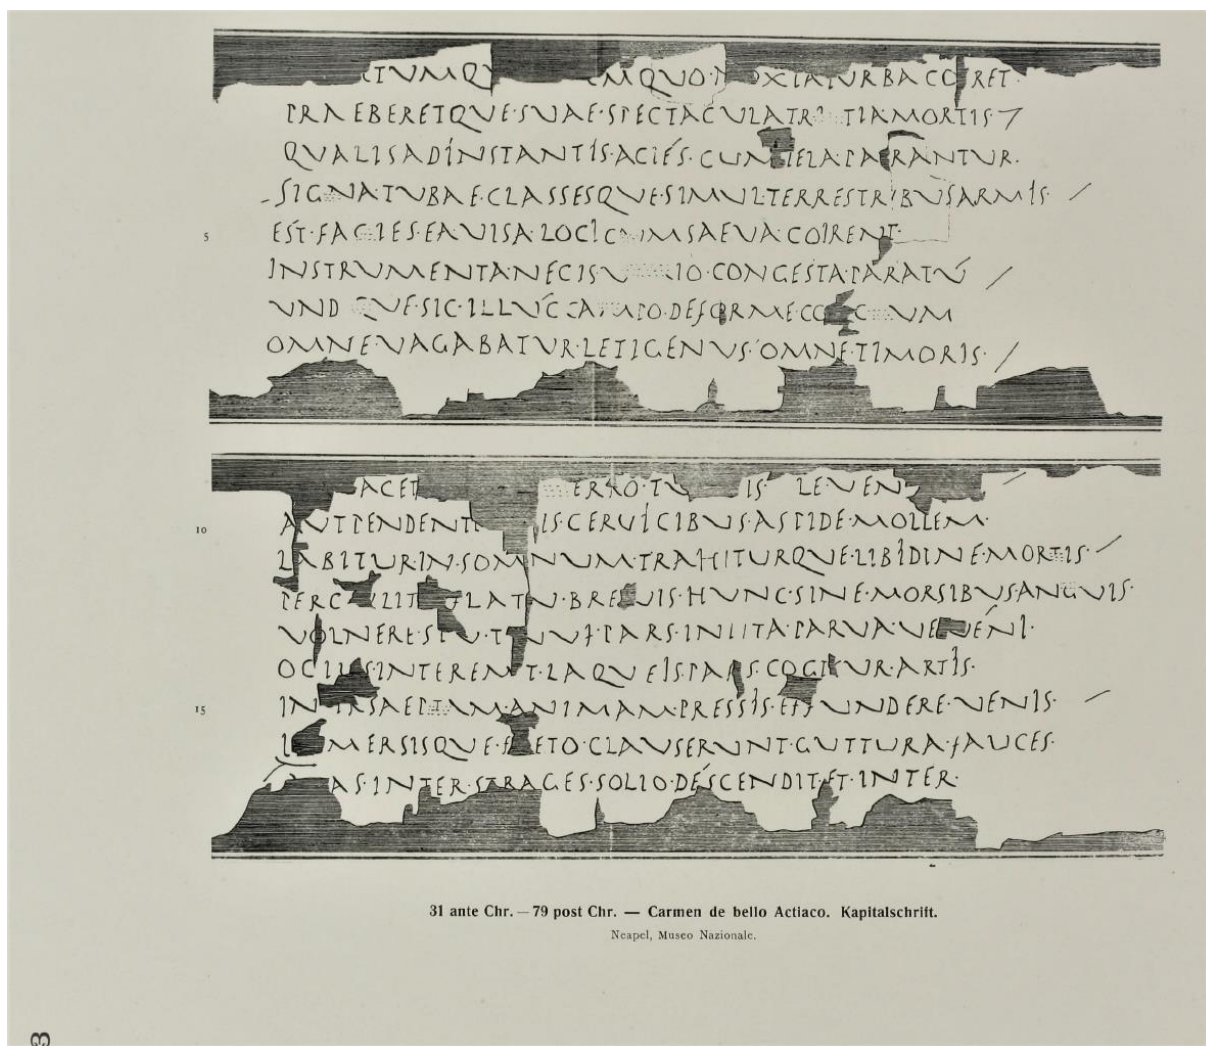 CTVMQV MQVO·N OXIA TVRBA CO RET·
PRAEBERETQVE·SVAE·SPECTACVLA TR TIA MORTIS·
QVALIS AD INSTANTIS·ACIES·CVM TELA·PARANTVR·
SIGNA·TVBAE·CLASSESQVE·SIMVL·TERRESTRIBVS ARMIS·
5 EST·FACIES·EA VISA LOCI CVM SAEVA COIRENT·
INSTRVMENTA·NECIS V IO·CONGESTA·PARATV
VND QVE·SIC·ILLVC CAMPO·DEFORME·CO C VM
OMNE·VAGABATVR·LETI GENVS·OMNE·TIMORIS·
ACET ERRO·TV IS LEVEN
10 AVT PENDENTE IS·CERVICIBVS·ASPIDE·MOLLEM·
LABITVR·IN·SOMNVM·TRAHITVRQVE·LIBIDINE·MORTIS·
PERC LIT FLATV·BREVIS·HVNC·SINE·MORSIBVS·ANGVIS·
VOLNERE·S V·T NVI·PARS·INLITA·PARVA·VENENI·
OCIVS·INTEREMIT·LAQVEIS·PARS·COGITVR·ARTIS·
15 IN RSAEPTAM·ANIMAM·PRESSIS·EFFVNDERE·VENIS·
I MERSISQVE·FRETO·CLAVSERVNT·GVTTVRA·FAVCES·
AS·INTER·STRAGES·SOLIO·DESCENDIT·ET·INTER·
31 ante Chr. – 79 post Chr. — Carmen de bello Actiaco. Kapitalschrift.
Neapel, Museo Nazionale.
3